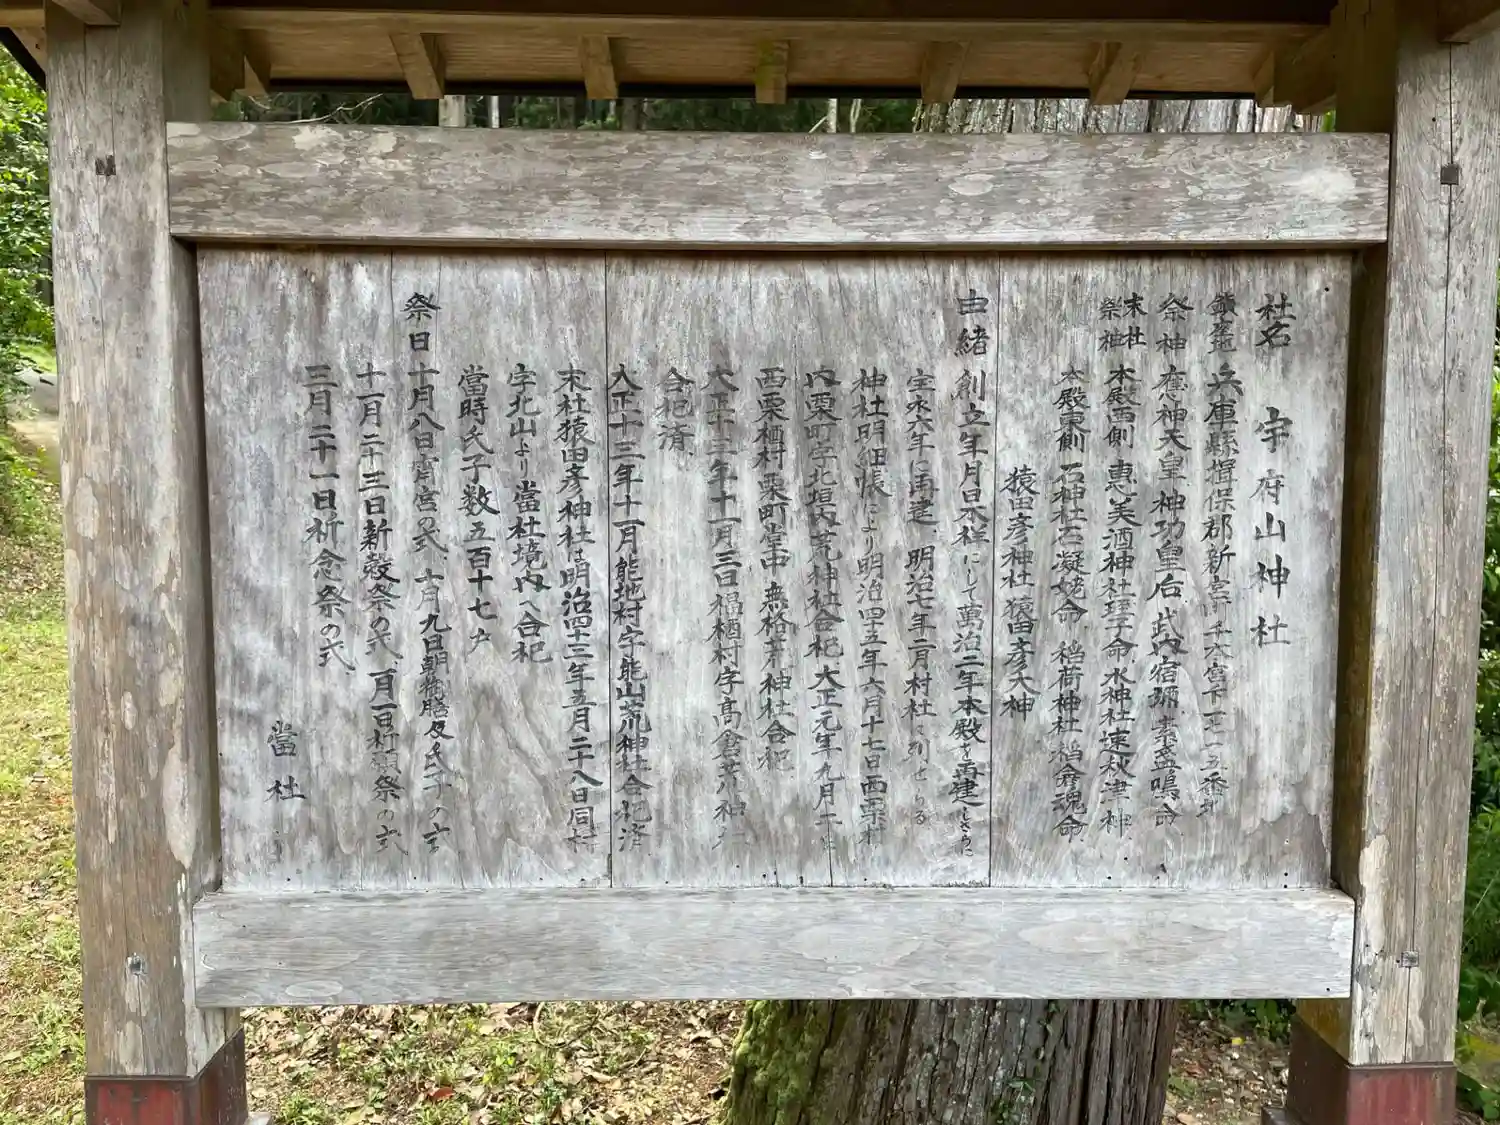 社名 宇府山神社
鎮座地 兵庫縣揖保郡新宮町千本宮下一七一五番地
祭神 應神天皇 神功皇后 武内宿祢 素盞嗚命
末社祭神 本殿西側 恵美酒神社 蛭子命 水神社 速秋津神
本殿東側 石神社 石凝姥命 稲荷神社 稲倉魂命
猿田彦神社 猿田彦大神
由緒 創立年月日不祥にして萬治二年本殿を再建しさらに
宝永六年に再建、明治七年二月村社に列せらる
神社明細帳により明治四十五年六月十七日西栗村
内栗町字北垣内荒神社合祀 大正元年九月二
西栗栖村栗町堂中 無格荒神社合祀
大正十三年十一月三日 栖村字高倉荒神
合祀済
大正十三年十一月能地村字能山荒神社合祀済
末社猿田彦神社は明治四十三年五月二十八日同村
字北山より當社境内へ合祀
當時氏子数五百十七戸
祭日 十月八日宵宮の式、十月九日朝 膳及氏子の式
十一月二十三日新穀祭の式、一月一日祈願祭の式
三月二十一日祈念祭の式
當社